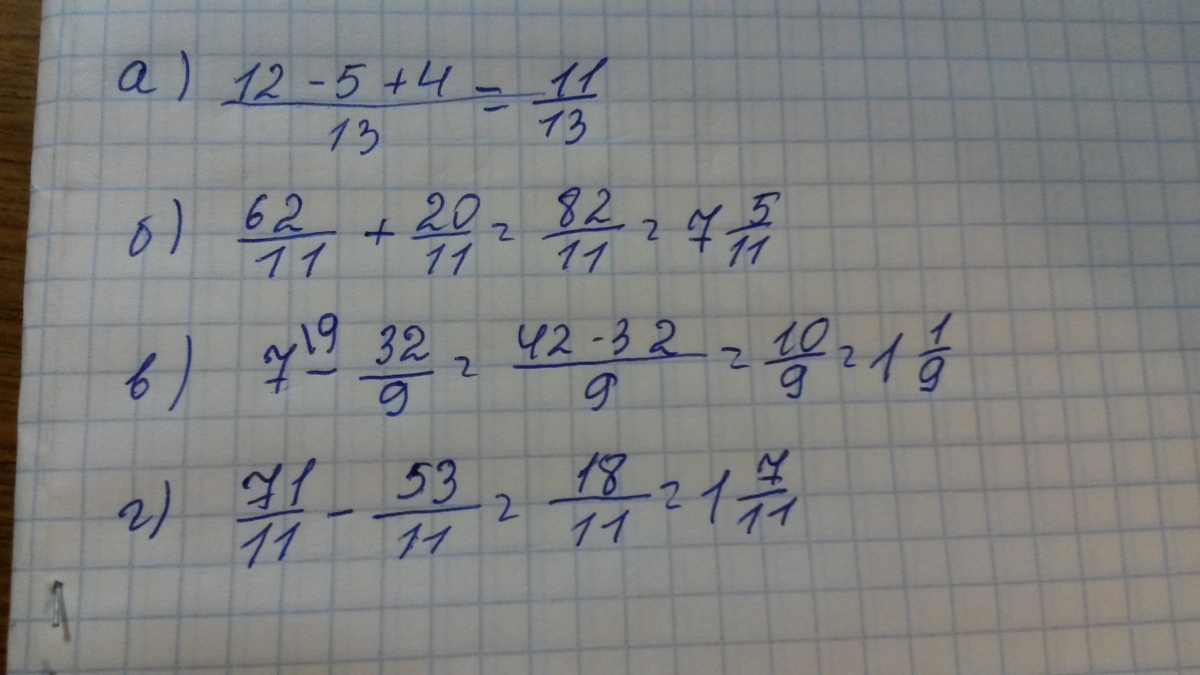 а) (12 - 5 + 4)/13 = 11/13
б) 62/11 + 20/11 = 82/11 = 7 5/11
в) 7\9 - 32/9 = (42 - 32)/9 = 10/9 = 1 1/9
г) 71/11 - 53/11 = 18/11 = 1 7/11